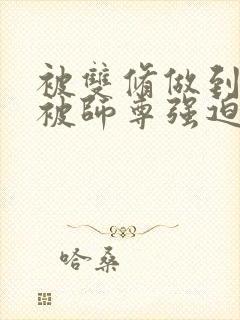 被雙脩做到
被師尊强迫
哈桑